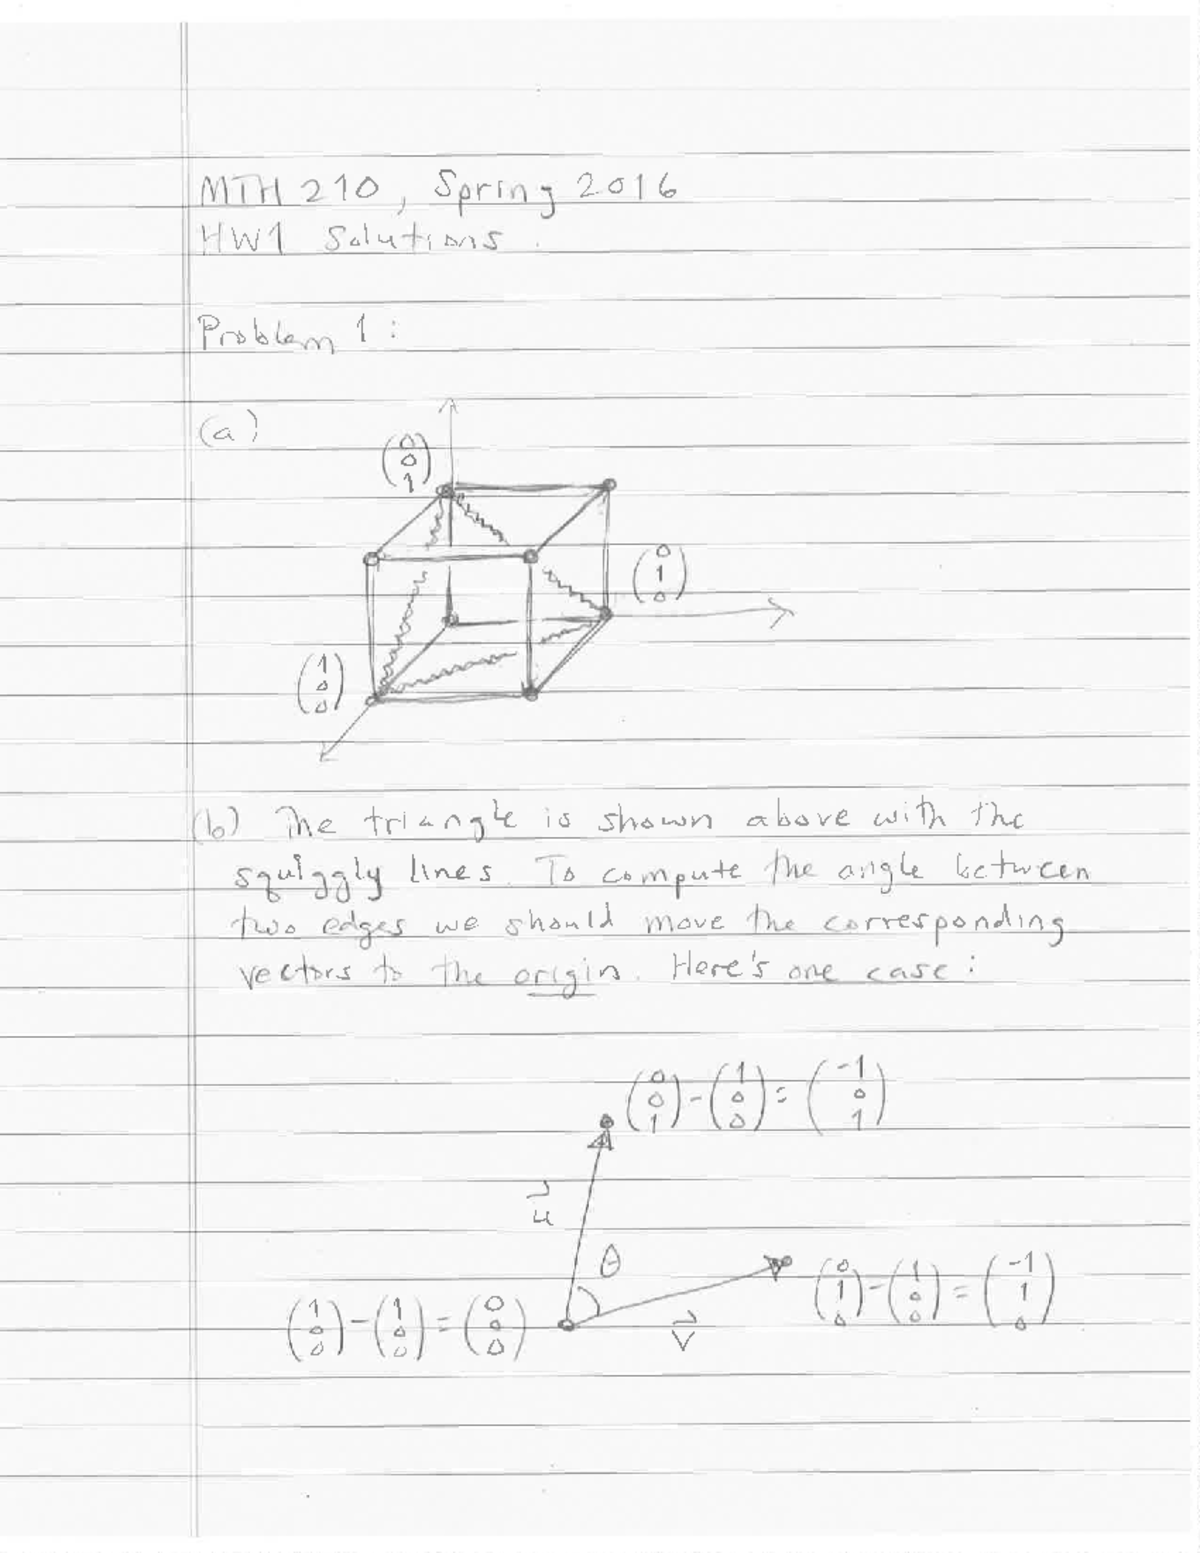 MTH 210, Spring 2016
HW1 Solutions.
Problem 1:
(a)
(0 0 1)
(0 1 0)
(1 0 0)
(b) The triangle is shown above with the
squiggly lines. To compute the angle between
two edges we should move the corresponding
vectors to the origin. Here's one case:
(0 0 1) - (1 0 0) = (-1 0 1)
u⃗
θ
(0 1 0) - (1 0 0) = (-1 1 0)
(1 0 0) - (1 0 0) = (0 0 0)
v⃗